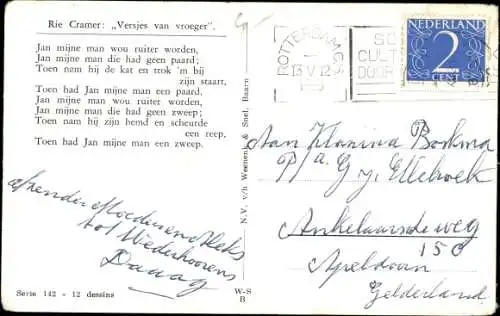 Rie Cramer: „Versjes van vroeger".
Jan mijne man wou ruiter worden,
Jan mijne man die had geen paard;
Toen nam hij de kat en trok 'm bij
zijn staart,
Toen had Jan mijne man een paard.
Jan mijne man wou ruiter worden,
Jan mijne man die had geen zweep;
Toen nam hij zijn hemd en scheurde
een reep,
Toen had Jan mijne man een zweep.
Serie 142 - 12 dessins
W-S
B
N.V. v/h Weenenk & Snel, Baarn
ROTTERDAM C.S.
13 V 12
CULT
DOOR
NEDERLAND
2
CENT
Aan Klazina Boekma
P/a G. J. Ellebroek
Ankelaarseweg
150
Apeldoorn
Gelderland
afzender Moeder en
tot